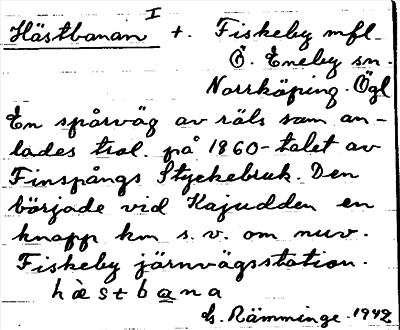 Hästbanan I +. Fiskeby mfl.
Ö. Eneby sn.
Norrköping. Ögl
En spårväg av räls som an-
lades trol. på 1860-talet av
Finspångs Styckebruk. Den
började vid Kajudden en
knapp km s.v. om nuv.
Fiskeby järnvägsstation.
hὲstbana
G. Rämminge. 1942